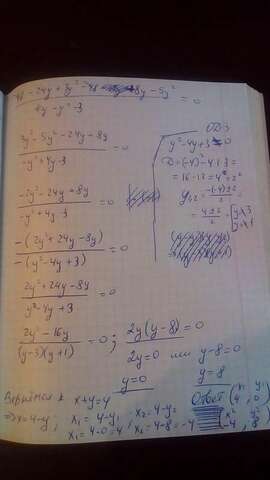 48 - 24y + 3y² - 48 8y - 5y² = 0
4y - y² - 3
3y² - 5y² - 24y - 8y = 0
-y² + 4y - 3
-2y² - 24y + 8y = 0
-y² + 4y - 3
-(2y² + 24y - 8y) = 0
-(y² - 4y + 3)
2y² + 24y - 8y = 0
y² - 4y + 3
2y² - 16y = 0 ; 2y(y - 8) = 0
(y - 3)(y + 1)
2y = 0 или y - 8 = 0
y = 0 y = 8
ОДЗ
y² - 4y + 3 ≠ 0
D = (-4)² - 4·1·3 =
= 16 - 12 = 4 = 2²
y₁,₂ = -(-4) ± 2 / 2 =
= 4 ± 2 / 2 = y ≠ 3
y ≠ 1
Вернёмся к x + y = 4
=> x = 4 - y; x₁ = 4 - y₁; x₂ = 4 - y₂
x₁ = 4 - 0 = 4; x₂ = 4 - 8 = -4
Ответ (4; 0)
(-4; 8)